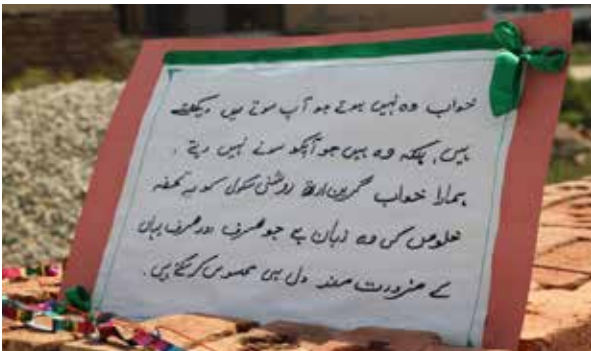 خواب وہ نہیں ہوتے جو آپ سوتے میں دیکھتے
ہیں، بلکہ وہ ہیں جو آپکو سونے نہیں دیتے ۔
ہمارا خواب گرین ارتھ روشنی سکول کو یہ تحفہ
خلوص کی وہ زبان ہے جو صرف اور صرف یہاں
کے ضرورت مند دل ہی محسوس کر سکتے ہیں ۔